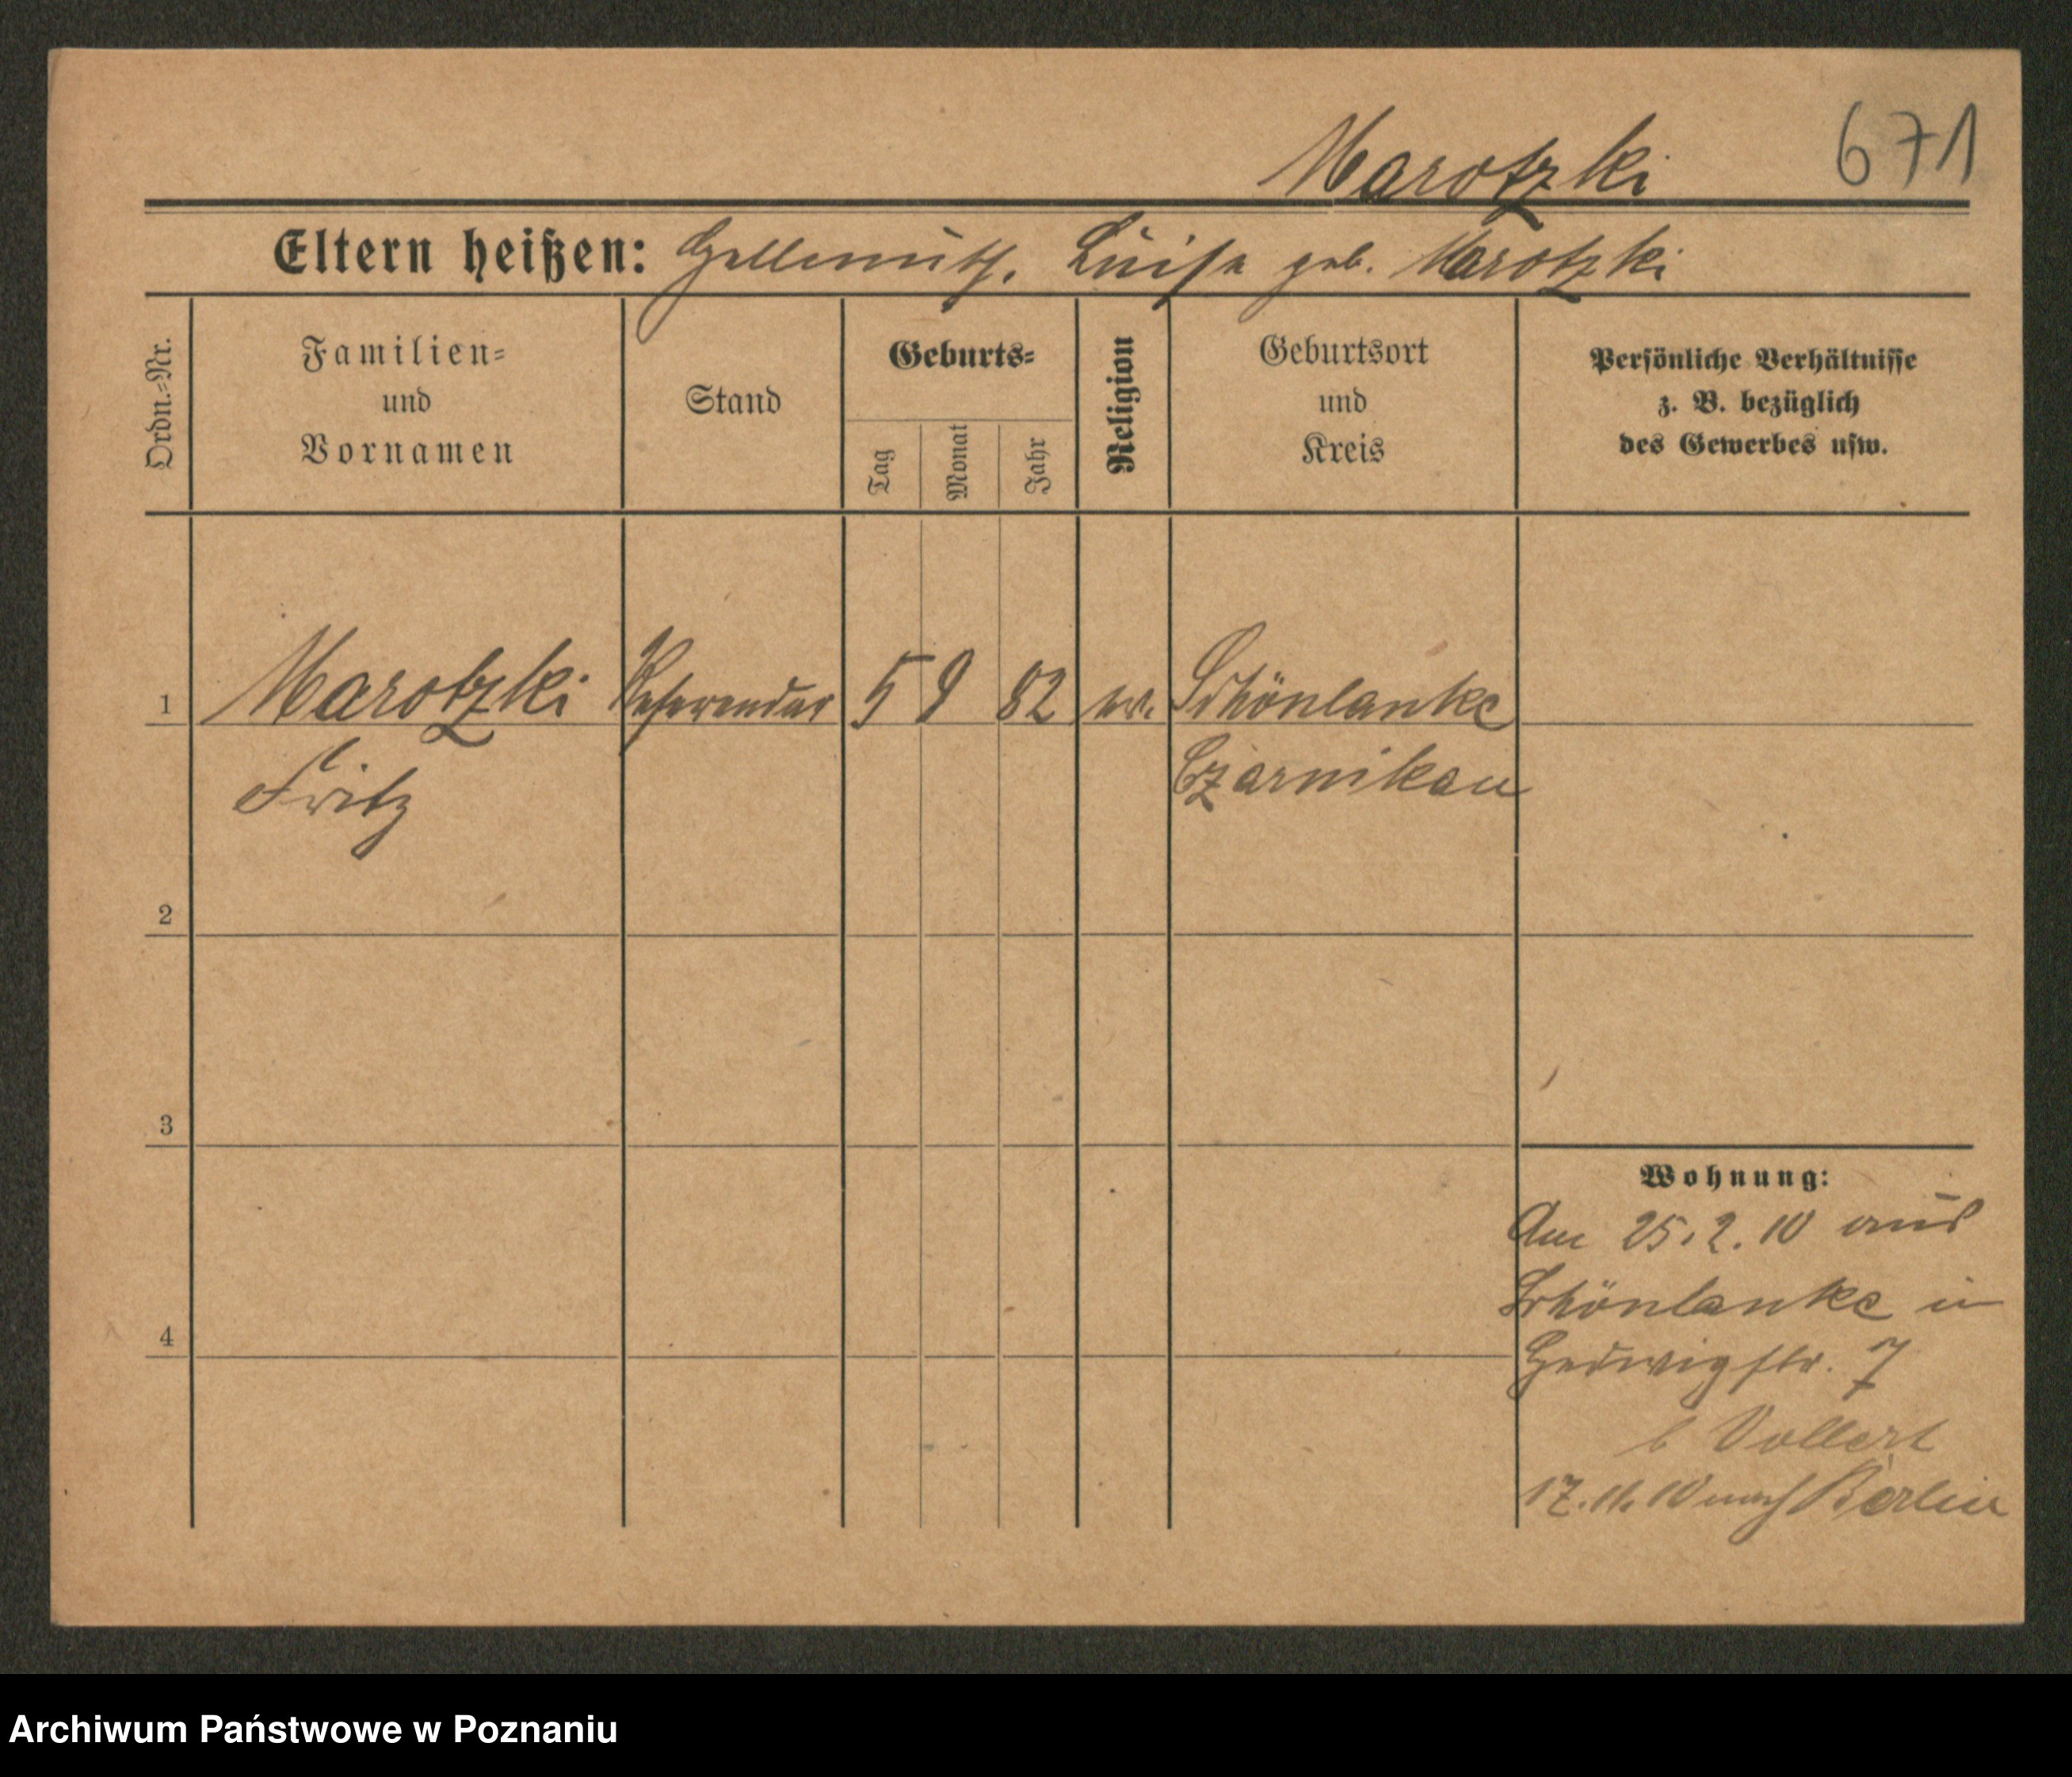 Marotzki 671
Eltern heißen: Hellmuth. Luise geb. Marotzki
Ordn.-Nr.
Familien-
und
Vornamen
Stand
Geburts-
Tag
Monat
Jahr
Religion
Geburtsort
und
Kreis
Persönliche Verhältnisse
z. B. bezüglich
des Gewerbes usw.
1 Marotzki Referendar 5 9 82 ev. Schönlanke
Fritz Czarnikau
2
3
Wohnung:
Am 25.2.10 aus
Schönlanke in
4
Hedwigstr. 7
b Vollert
17.11.10 nach Berlin
Archiwum Państwowe w Poznaniu